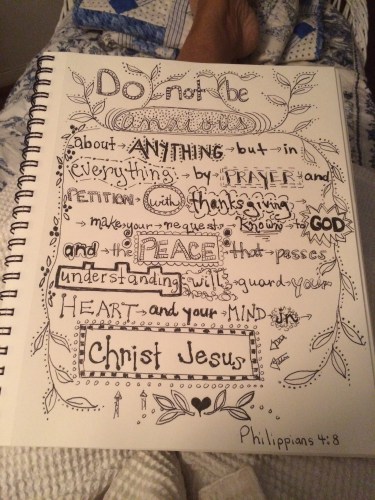 Do not be
anxious
about ANYTHING but in
everything by PRAYER and
PETITION with thanksgiving
make your request known to GOD
and the PEACE that passes
understanding will guard your
HEART and your MIND in
Christ Jesus
Philippians 4:8